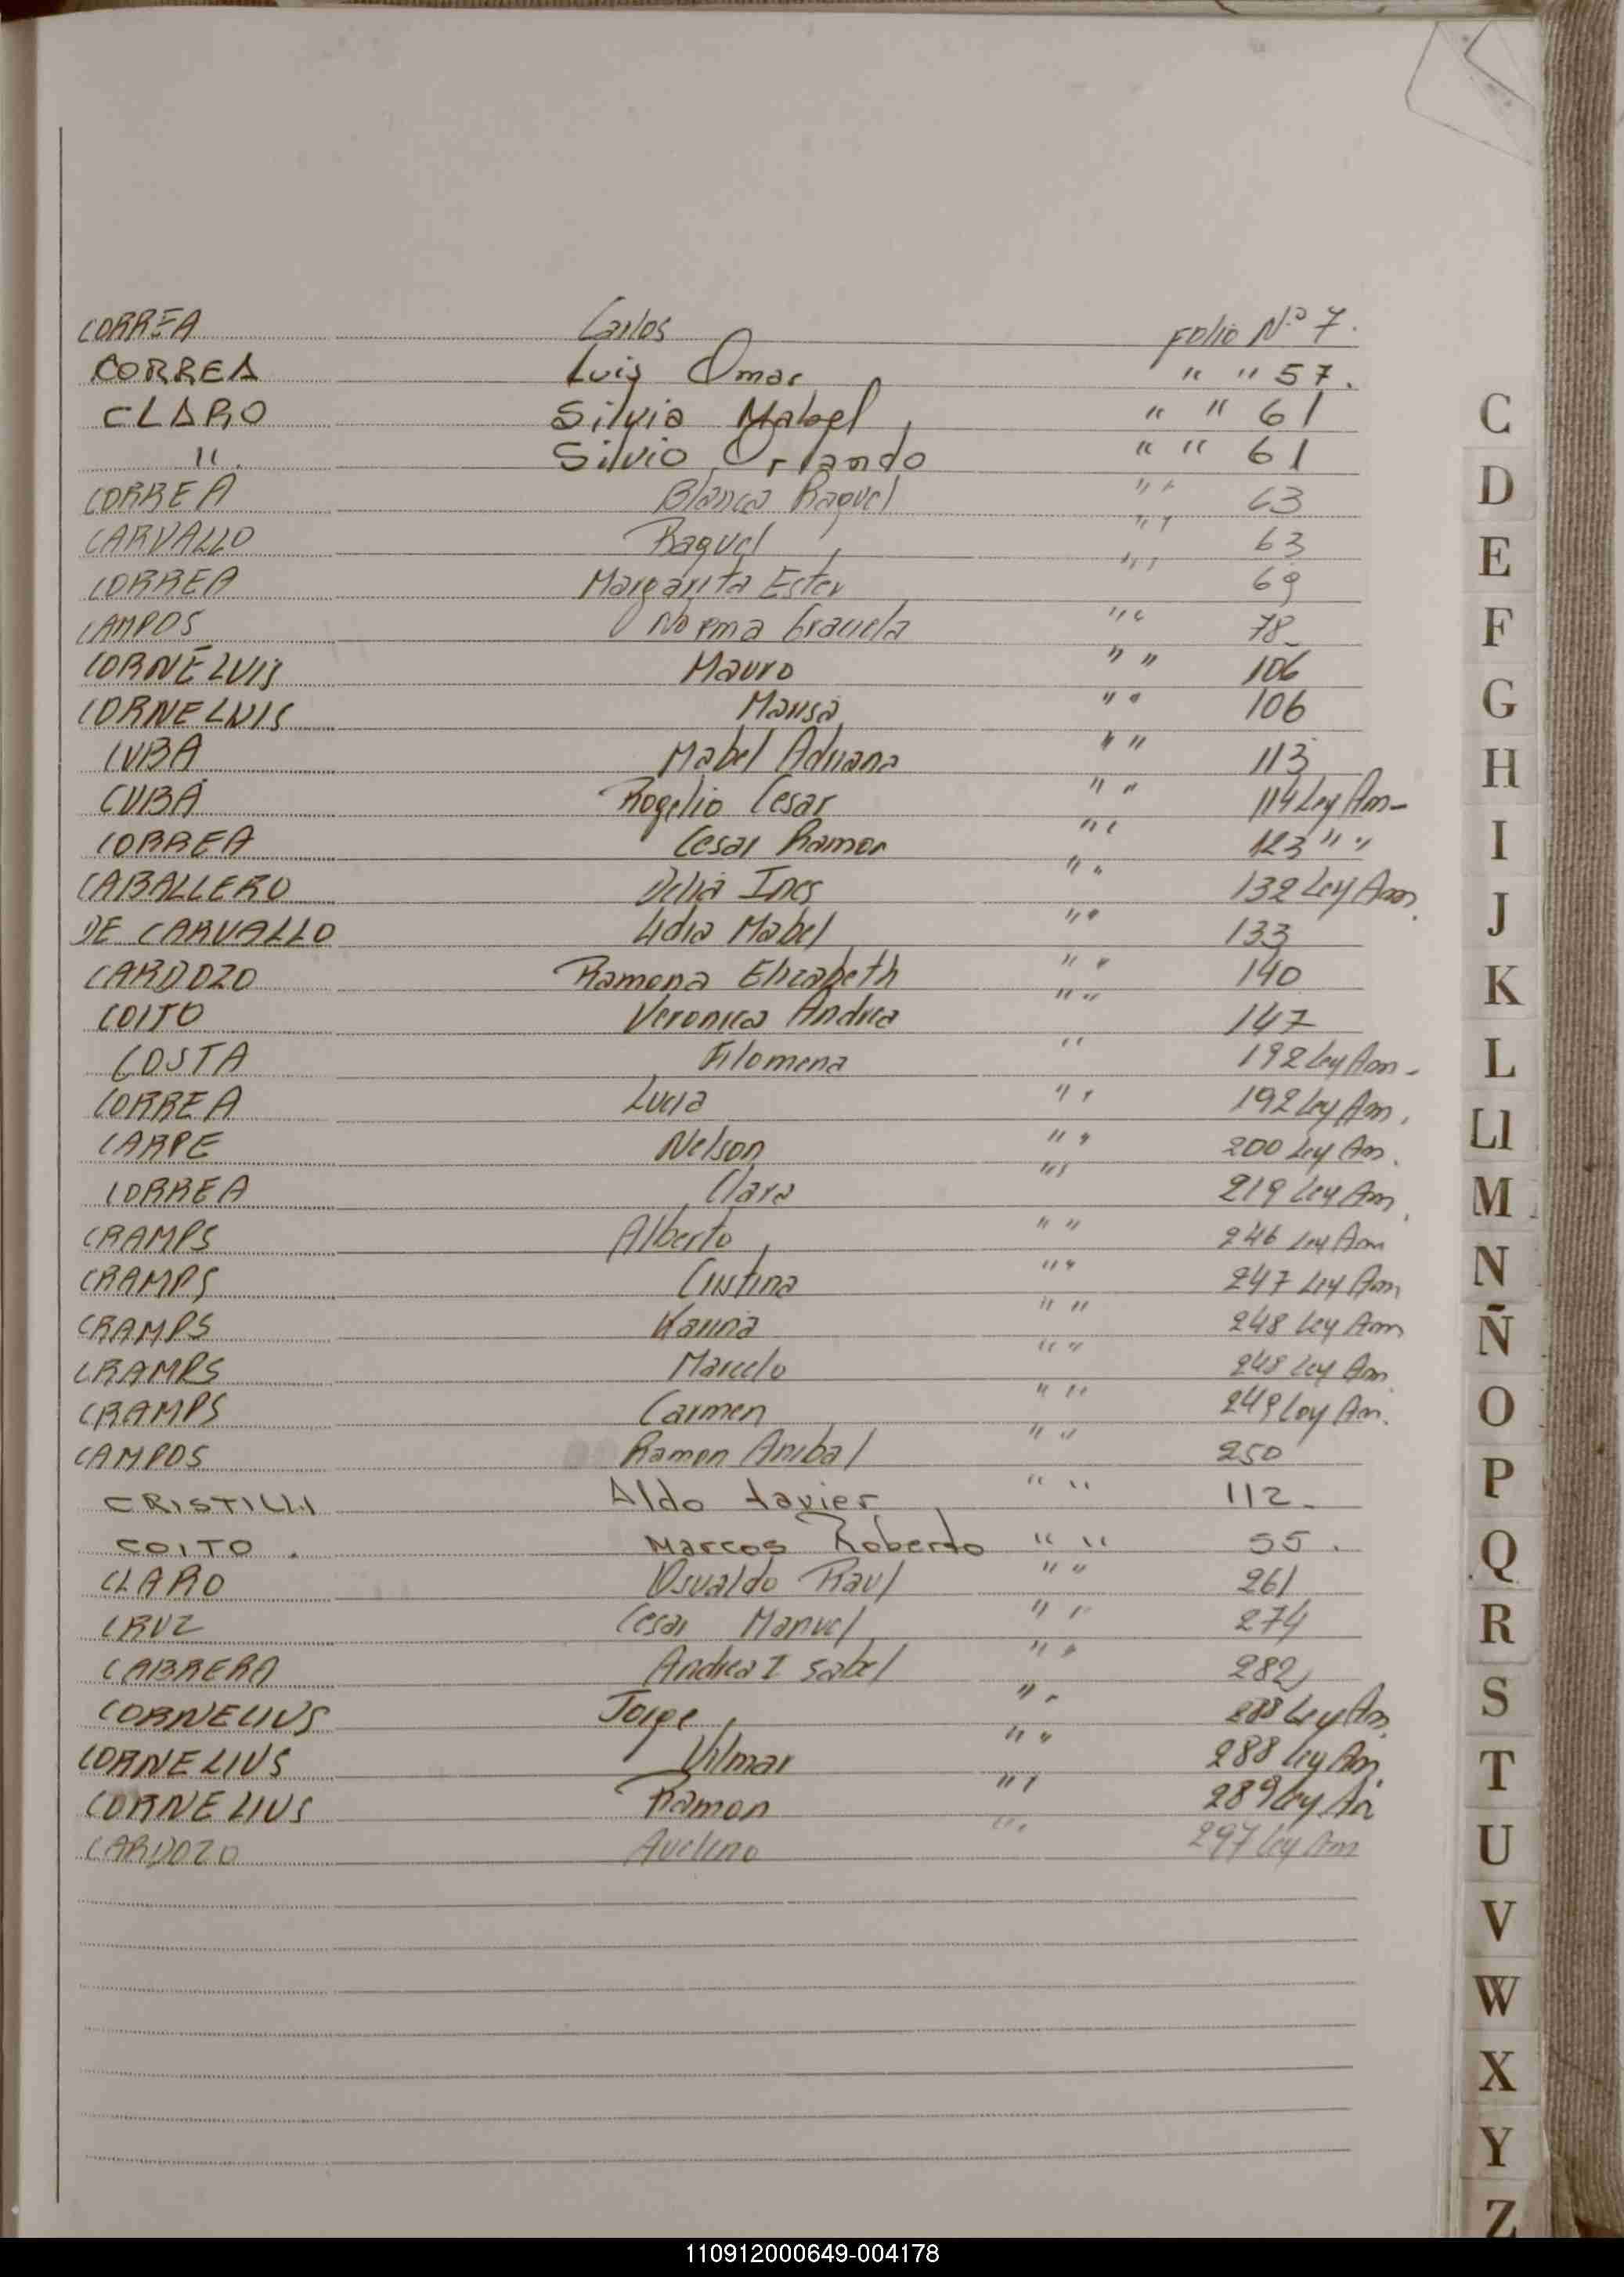 CORREA Carlos Folio Nº 7.
CORREA Luis Omar " " 57.
CLARO Silvia Mabel " " 61
". Silvio Orlando " " 61
CORREA Blanca Raquel " " 63
CARVALLO Raquel " " 63
CORREA Margarita Ester " " 69
CAMPOS Norma Graciela " " 78
CORNELUIS Mauro " " 106
CORNELUIS Marisa " " 106
CUBA Mabel Adriana " " 113
CUBA Rogelio Cesar " " 114 Ley Am-
CORREA Cesar Ramon " " 123 " "
CABALLERO Delia Ines " " 132 Ley Am
DE CARVALLO Lidia Mabel " " 133
CARDOZO Ramona Elizabeth " " 140
COITO Veronica Andrea " " 147
COSTA Filomena " 192 Ley Am-
CORREA Lucia " " 192 Ley Am.
CARPE Nelson " " 200 Ley Am.
CORREA Clara " " 219 Ley Am
CRAMPS Alberto " " 246 Ley Am
CRAMPS Cristina " " 247 Ley Am
CRAMPS Karina " " 248 Ley Am
CRAMPS Marcelo " " 248 Ley Am
CRAMPS Carmen " " 249 Ley Am.
CAMPOS Ramon Anibal " " 250
CRISTILLI Aldo Javier " " 112.
COITO. Marcos Roberto " " 55.
CLARO Osvaldo Raul " " 261
CRUZ Cesar Manuel " " 274
CABRERA Andrea Isabel " " 282
CORNELIUS Jorge " " 288 Ley Am.
CORNELIUS Vilmar " " 288 Ley Am
CORNELIUS Ramon " " 289 Ley Am
CARDOZO Avelino " " 297 Ley Am
C
D
E
F
G
H
I
J
K
L
Ll
M
N
Ñ
O
P
Q
R
S
T
U
V
W
X
Y
Z
110912000649-004178